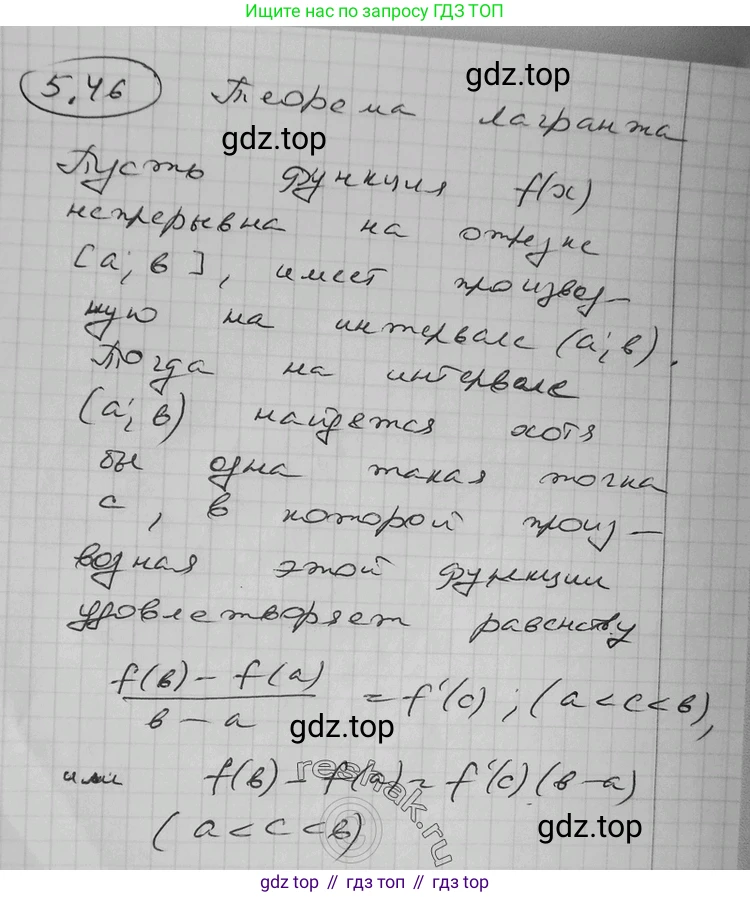 Ищите нас по запросу ГДЗ ТОП
5.46 Теорема Лагранжа
gdz.top
gdz.top
Пусть функция f(x)
непрерывна на отрезке
[a; в], имеет производ-
ную на интервале (a; в).
Тогда на интервале
(a; в) найдется хотя
бы одна такая точка
c, в которой произ-
водная этой функции
удовлетворяет равенству
f(в) - f(a) / в - a = f'(c); (a < c < в),
gdz.top
или f(в) - f(a) = f'(c)(в - a)
reshak.ru
(a < c < в)
gdz.top
gdz top // гдз топ // gdz top